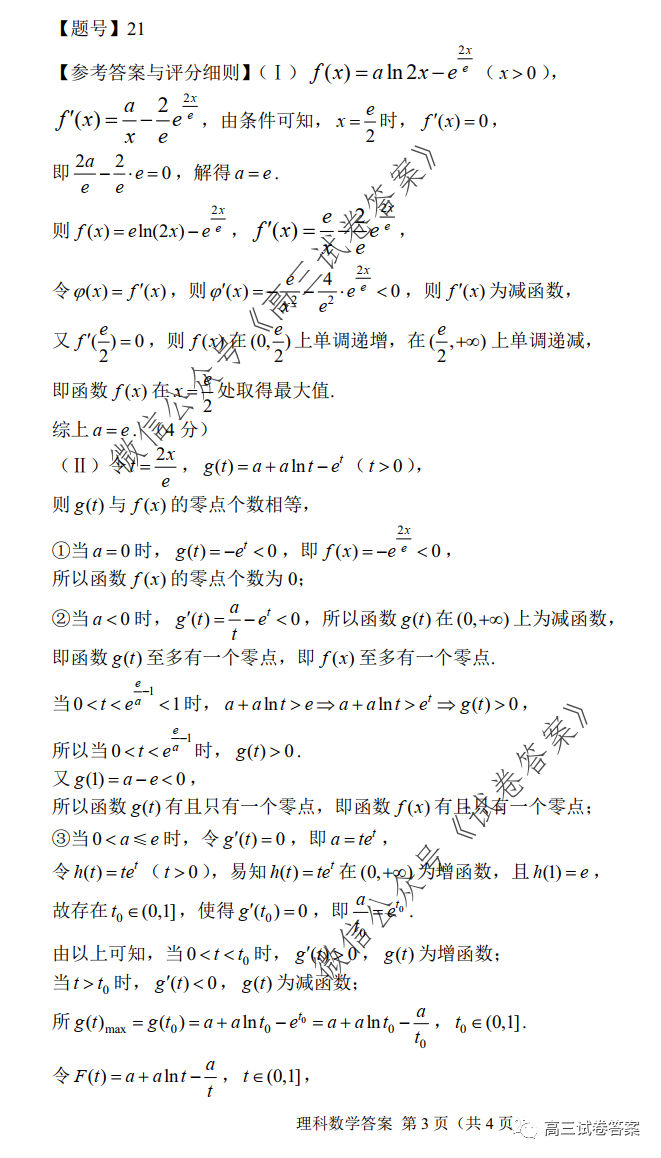 【题号】21
【参考答案与评分细则】(Ⅰ) f(x)=aln2x−e^{2x/e} (x>0),
f′(x)=a/x−(2/e)e^{2x/e},由条件可知,x=e/2时,f′(x)=0,
即2a/e−2/e·e=0,解得a=e.
则f(x)=eln(2x)−e^{2x/e},f′(x)=e/x−(2/e)e^{2x/e},
令φ(x)=f′(x),则φ′(x)=−e/x²−4/e²·e^{2x/e}<0,则f′(x)为减函数,
又f′(e/2)=0,则f(x)在(0,e/2)上单调递增,在(e/2,+∞)上单调递减,
即函数f(x)在x=e/2处取得最大值.
综上a=e.(4分)
(Ⅱ)令t=2x/e,g(t)=a+alnt−e^t (t>0),
则g(t)与f(x)的零点个数相等,
①当a=0时,g(t)=−e^t<0,即f(x)=−e^{2x/e}<0,
所以函数f(x)的零点个数为0;
②当a<0时,g′(t)=a/t−e^t<0,所以函数g(t)在(0,+∞)上为减函数,
即函数g(t)至多有一个零点,即f(x)至多有一个零点.
当0<t<e^{e/a−1}<1时,a+alnt>e⇒a+alnt>e^t⇒g(t)>0,
所以当0<t<e^{e/a−1}时,g(t)>0.
又g(1)=a−e<0,
所以函数g(t)有且只有一个零点,即函数f(x)有且只有一个零点;
③当0<a≤e时,令g′(t)=0,即a=te^t,
令h(t)=te^t (t>0),易知h(t)=te^t在(0,+∞)为增函数,且h(1)=e,
故存在t₀∈(0,1],使得g′(t₀)=0,即a/t₀=e^{t₀}.
由以上可知,当0<t<t₀时,g′(t)>0,g(t)为增函数;
当t>t₀时,g′(t)<0,g(t)为减函数;
所g(t)max=g(t₀)=a+alnt₀−e^{t₀}=a+alnt₀−a/t₀,t₀∈(0,1].
令F(t)=a+alnt−a/t,t∈(0,1],
理科数学答案 第3页(共4页
高三试卷答案
微信公众号《高三试卷答案》
微信公众号《试卷答案》